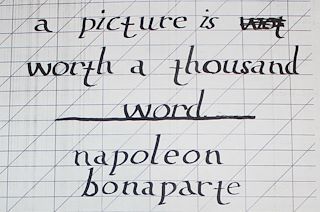 a picture is
worth a thousand
word
napoleon
bonaparte